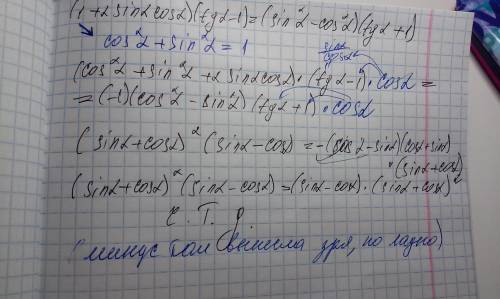 (1+2sinα cosα)(tgα-1)=(sin²α-cos²α)(tgα+1)
cos²α+sin²α=1
sinα
cosα
(cos²α+sin²α+2sinαcosα)·(tgα-1)·cosα=
=(-1)(cos²α-sin²α)(tgα+1)·cosα
(sinα+cosα)²(sinα-cosα)=-(cosα-sinα)(cosα+sinα)
·(sinα+cosα)
(sinα+cosα)²(sinα-cosα)=(sinα-cosα)·(sinα+cosα)²
Ч.Т.Д.
(минус там вынесла зря, но ладно)